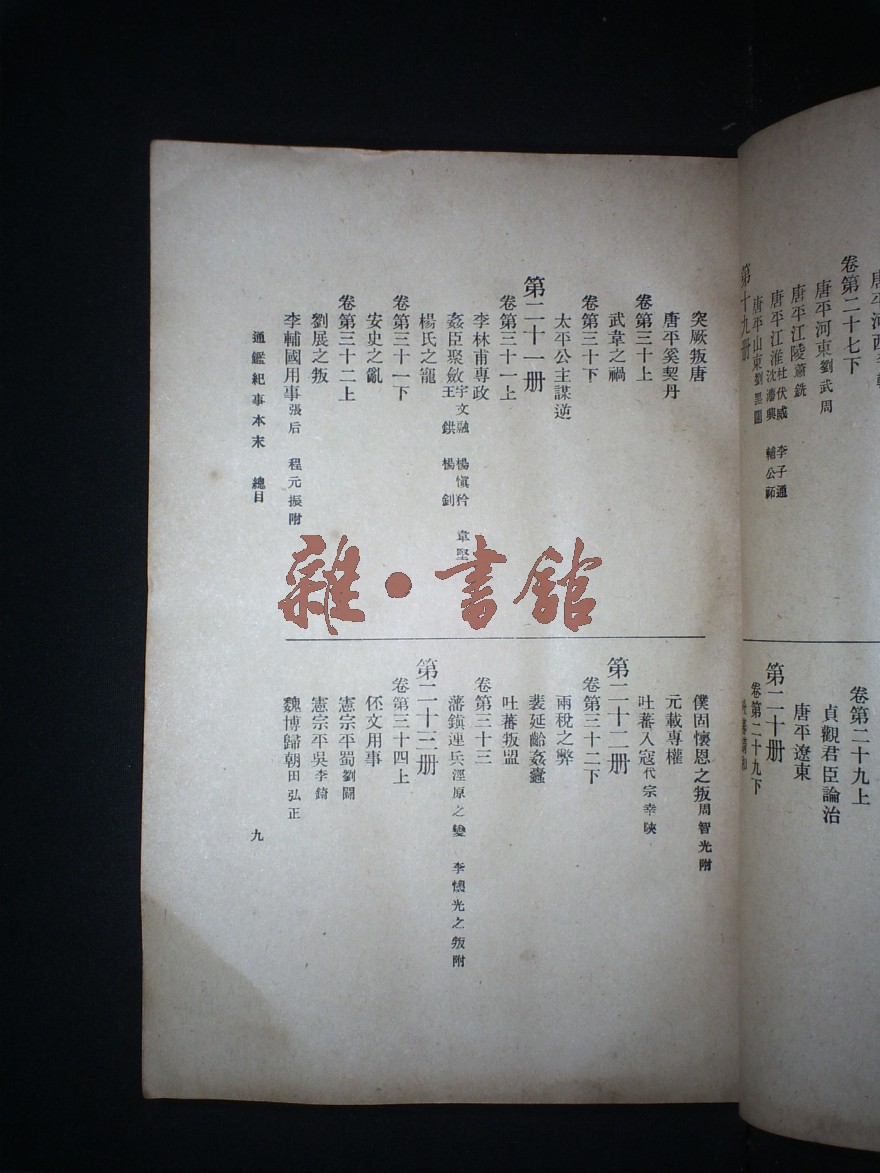 卷第二十七下
唐平河東劉武周
唐平江陵蕭銑
唐平江淮杜伏威 李子通 沈法興 輔公祏
唐平山東劉黑闥
第十九册
卷第二十九上
貞觀君臣論治
唐平遼東
第二十册
卷第二十九下
突厥叛唐
唐平奚契丹
卷第三十上
武韋之禍
卷第三十下
太平公主謀逆
第二十一册
卷第三十一上
李林甫專政
姦臣聚斂宇文融 楊愼矜 韋堅 王鉷 楊釗
楊氏之寵
卷第三十一下
安史之亂
卷第三十二上
劉展之叛
李輔國用事張后 程元振附
僕固懷恩之叛周智光附
元載專權
吐蕃入寇代宗幸陝
第二十二册
卷第三十二下
兩稅之弊
裴延齡姦蠹
吐蕃叛盟
卷第三十三
藩鎭連兵涇原之變 李懷光之叛附
第二十三册
卷第三十四上
伾文用事
憲宗平蜀劉闢
憲宗平吳李錡
魏博歸朝田弘正
通鑑紀事本末 總目
九
雜·書館